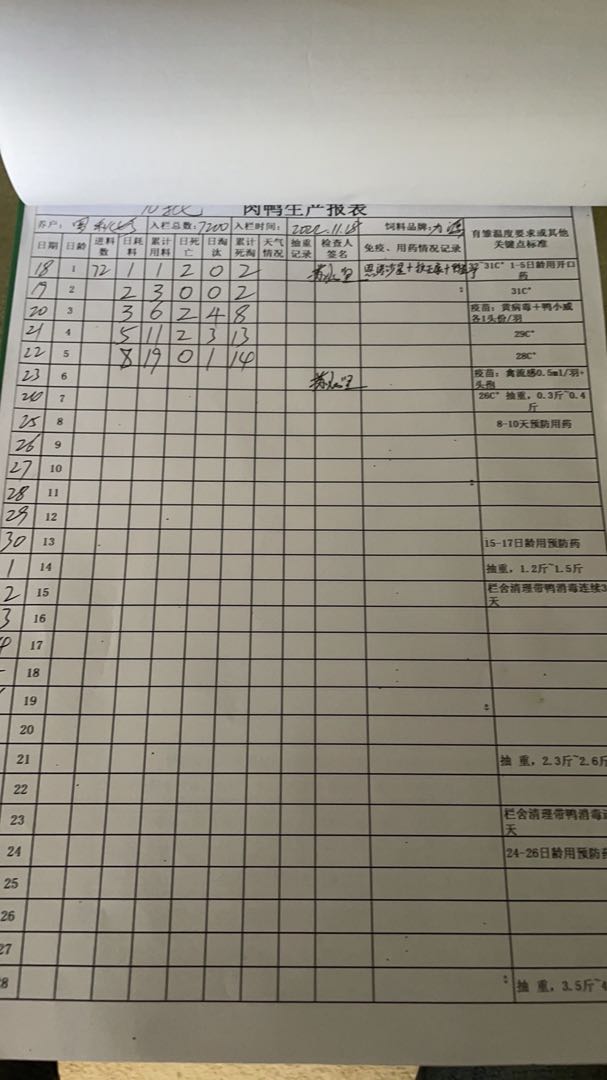 肉鸭生产报表
养户: 入栏总数:7200 入栏时间: 2022.11.18 饲料品牌:力
日期 日龄 进料数 日耗料 累计用料 日死亡 日淘汰 累计死淘 天气情况 抽重记录 检查人签名 免疫、用药情况记录 育雏温度要求或其他关键点标准
18 1 72 1 1 2 0 2 31C° 1-5日龄用开口药
19 2 2 3 0 0 2 31C°
20 3 3 6 2 4 8 疫苗:黄病毒+鸭小威各1头份/羽
21 4 5 11 2 3 13 29C°
22 5 8 19 0 1 14 28C°
23 6 疫苗:禽流感0.5ml/羽+头孢
7 26C° 抽重,0.3斤~0.4斤
25 8 8-10天预防用药
26 9
27 10
28 11
29 12
30 13 15-17日龄用预防药
1 14 抽重,1.2斤~1.5斤
2 15 栏舍清理带鸭消毒连续3天
3 16
17
18
19
20
21 抽 重,2.3斤~2.6斤
22
23 栏舍清理带鸭消毒 天
24 24-26日龄用预防药
25
26
27
8 抽 重,3.5斤~4